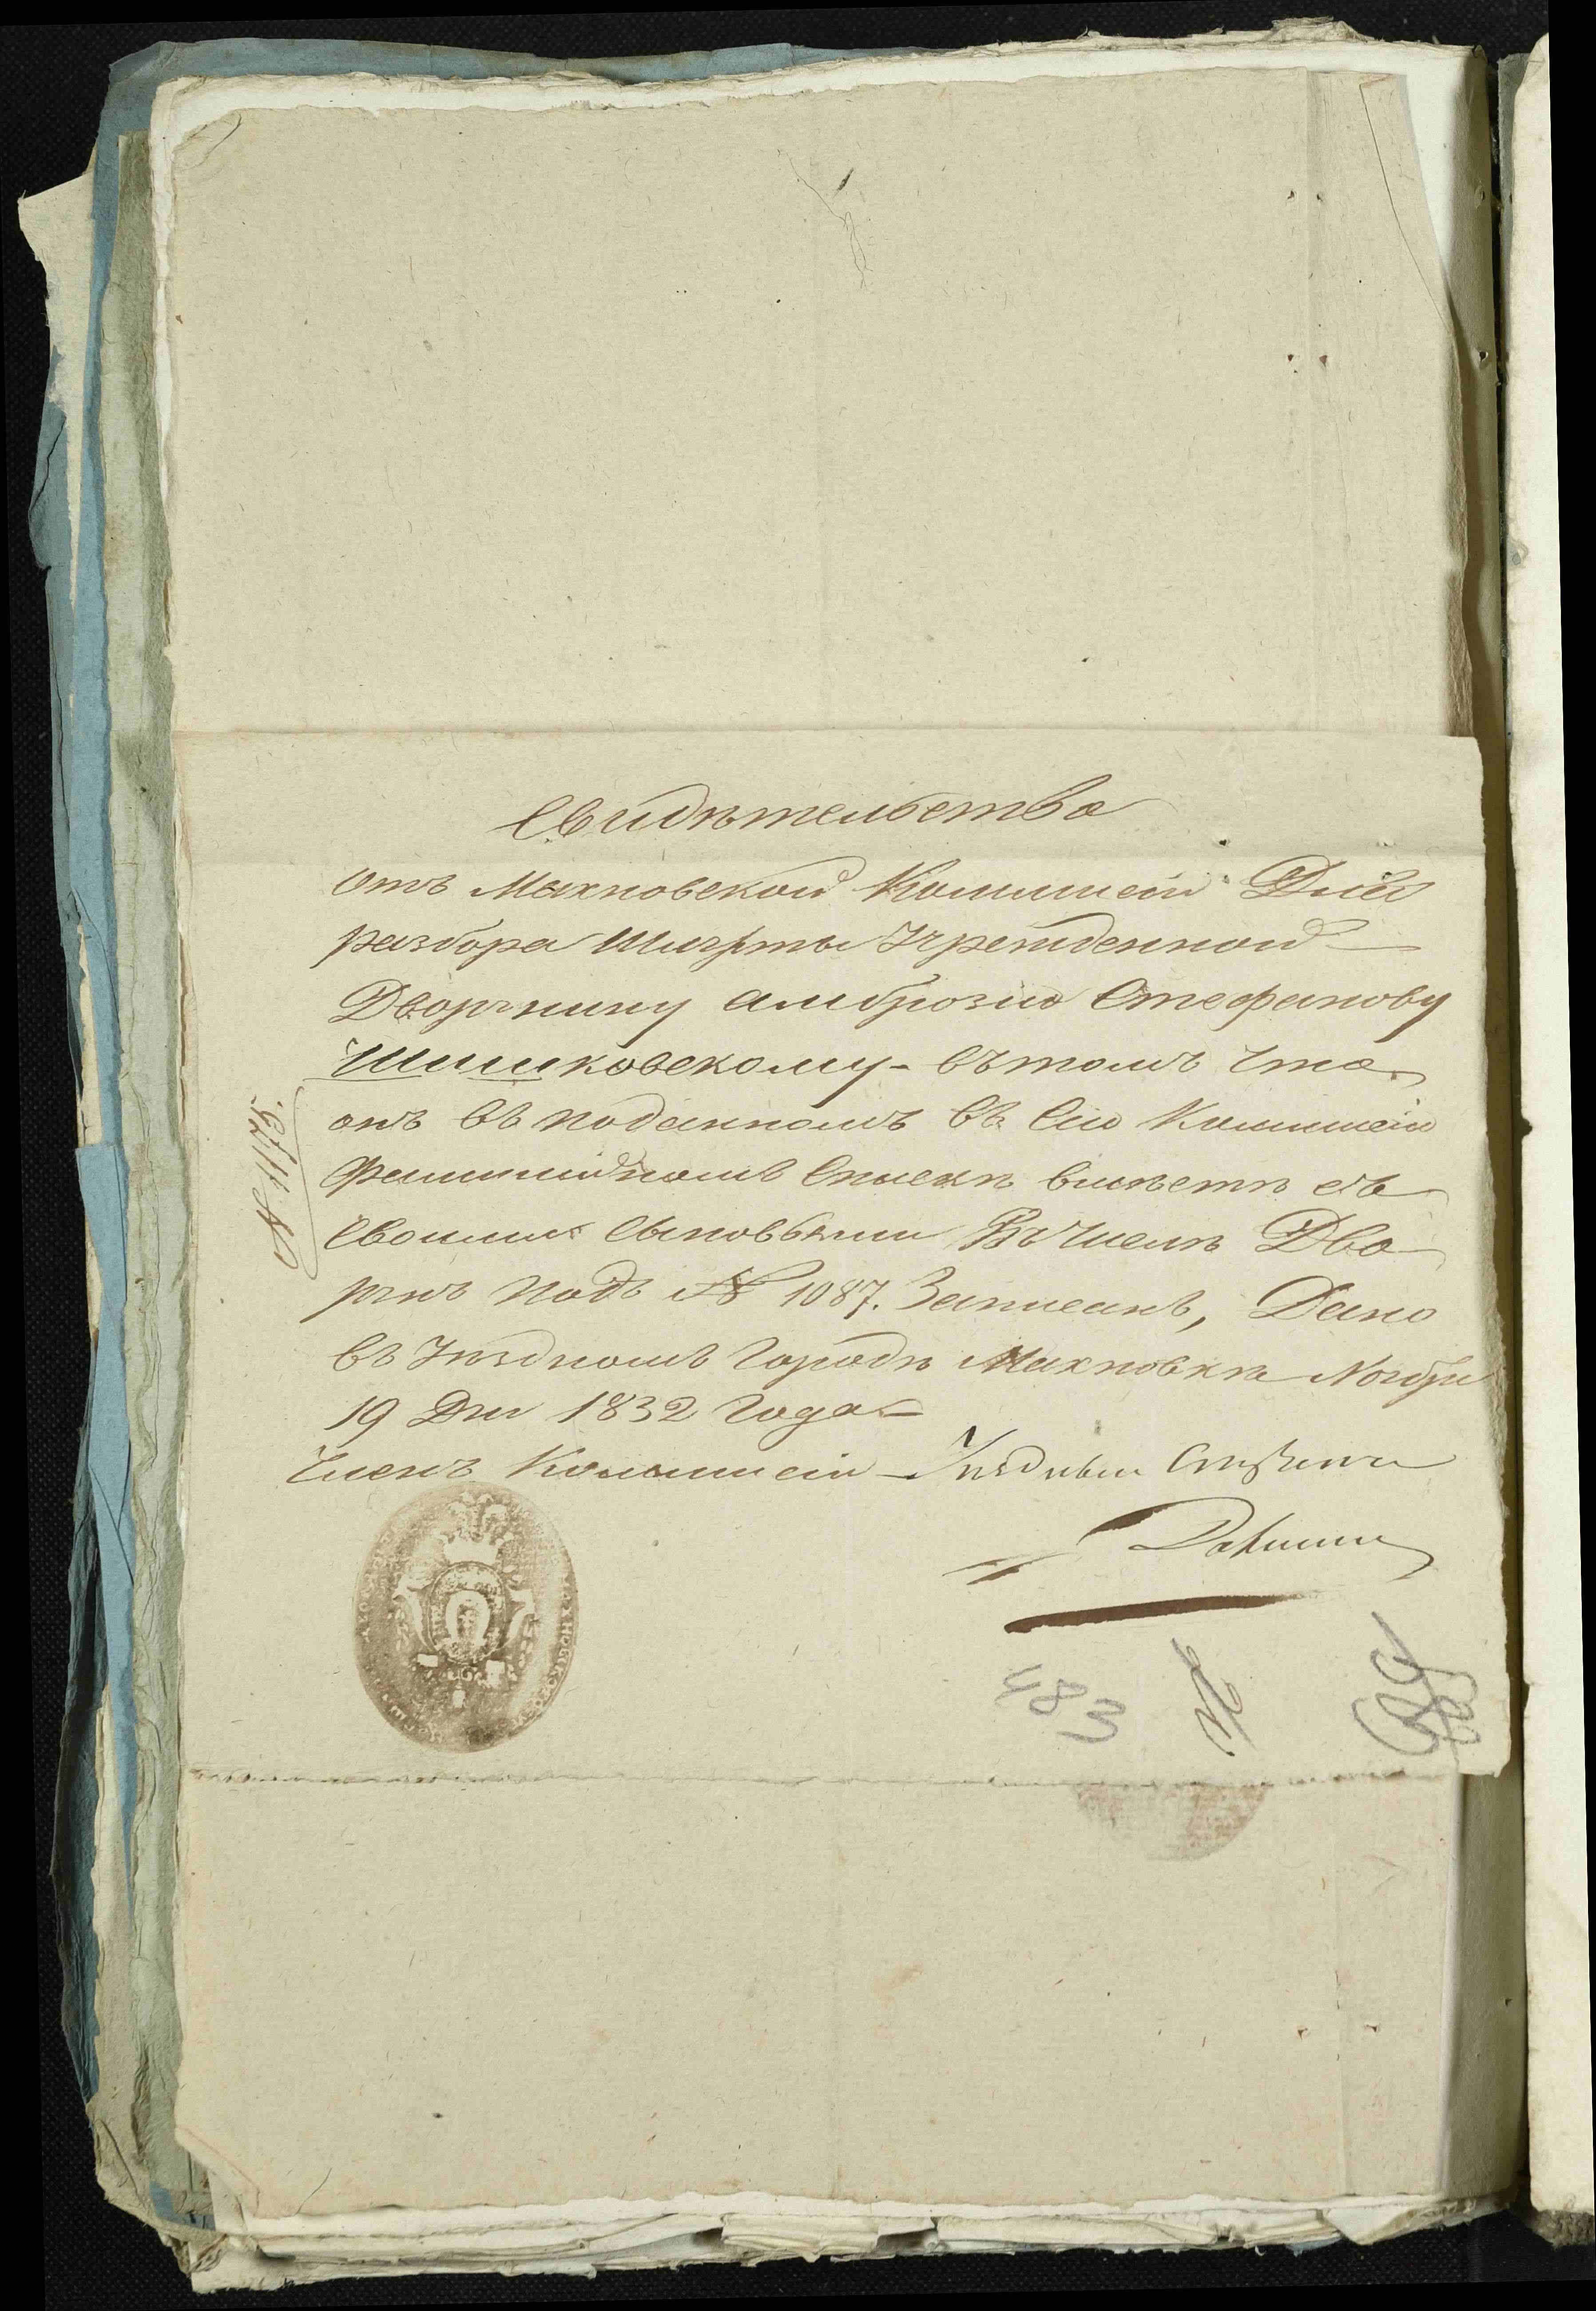 Свидѣтельство
отъ Махновской Коммисіи Для
разбора Шляхты Учрежденной
Дворянину Амброзію Стефанову
Шишковскому - вътомъ что
онъ въ поданномъ въ Сію Коммисію
Фамилійномъ Спискѣ вмѣстѣ съ
Своими Сыновьями Въ Числѣ Дво
рянъ подъ № 1087. Записанъ, Дано
въ Уѣздномъ Городѣ Махновкѣ Ноября
19 Дня 1832 Года
Членъ Коммисіи Уѣздный
№ 1173.
483